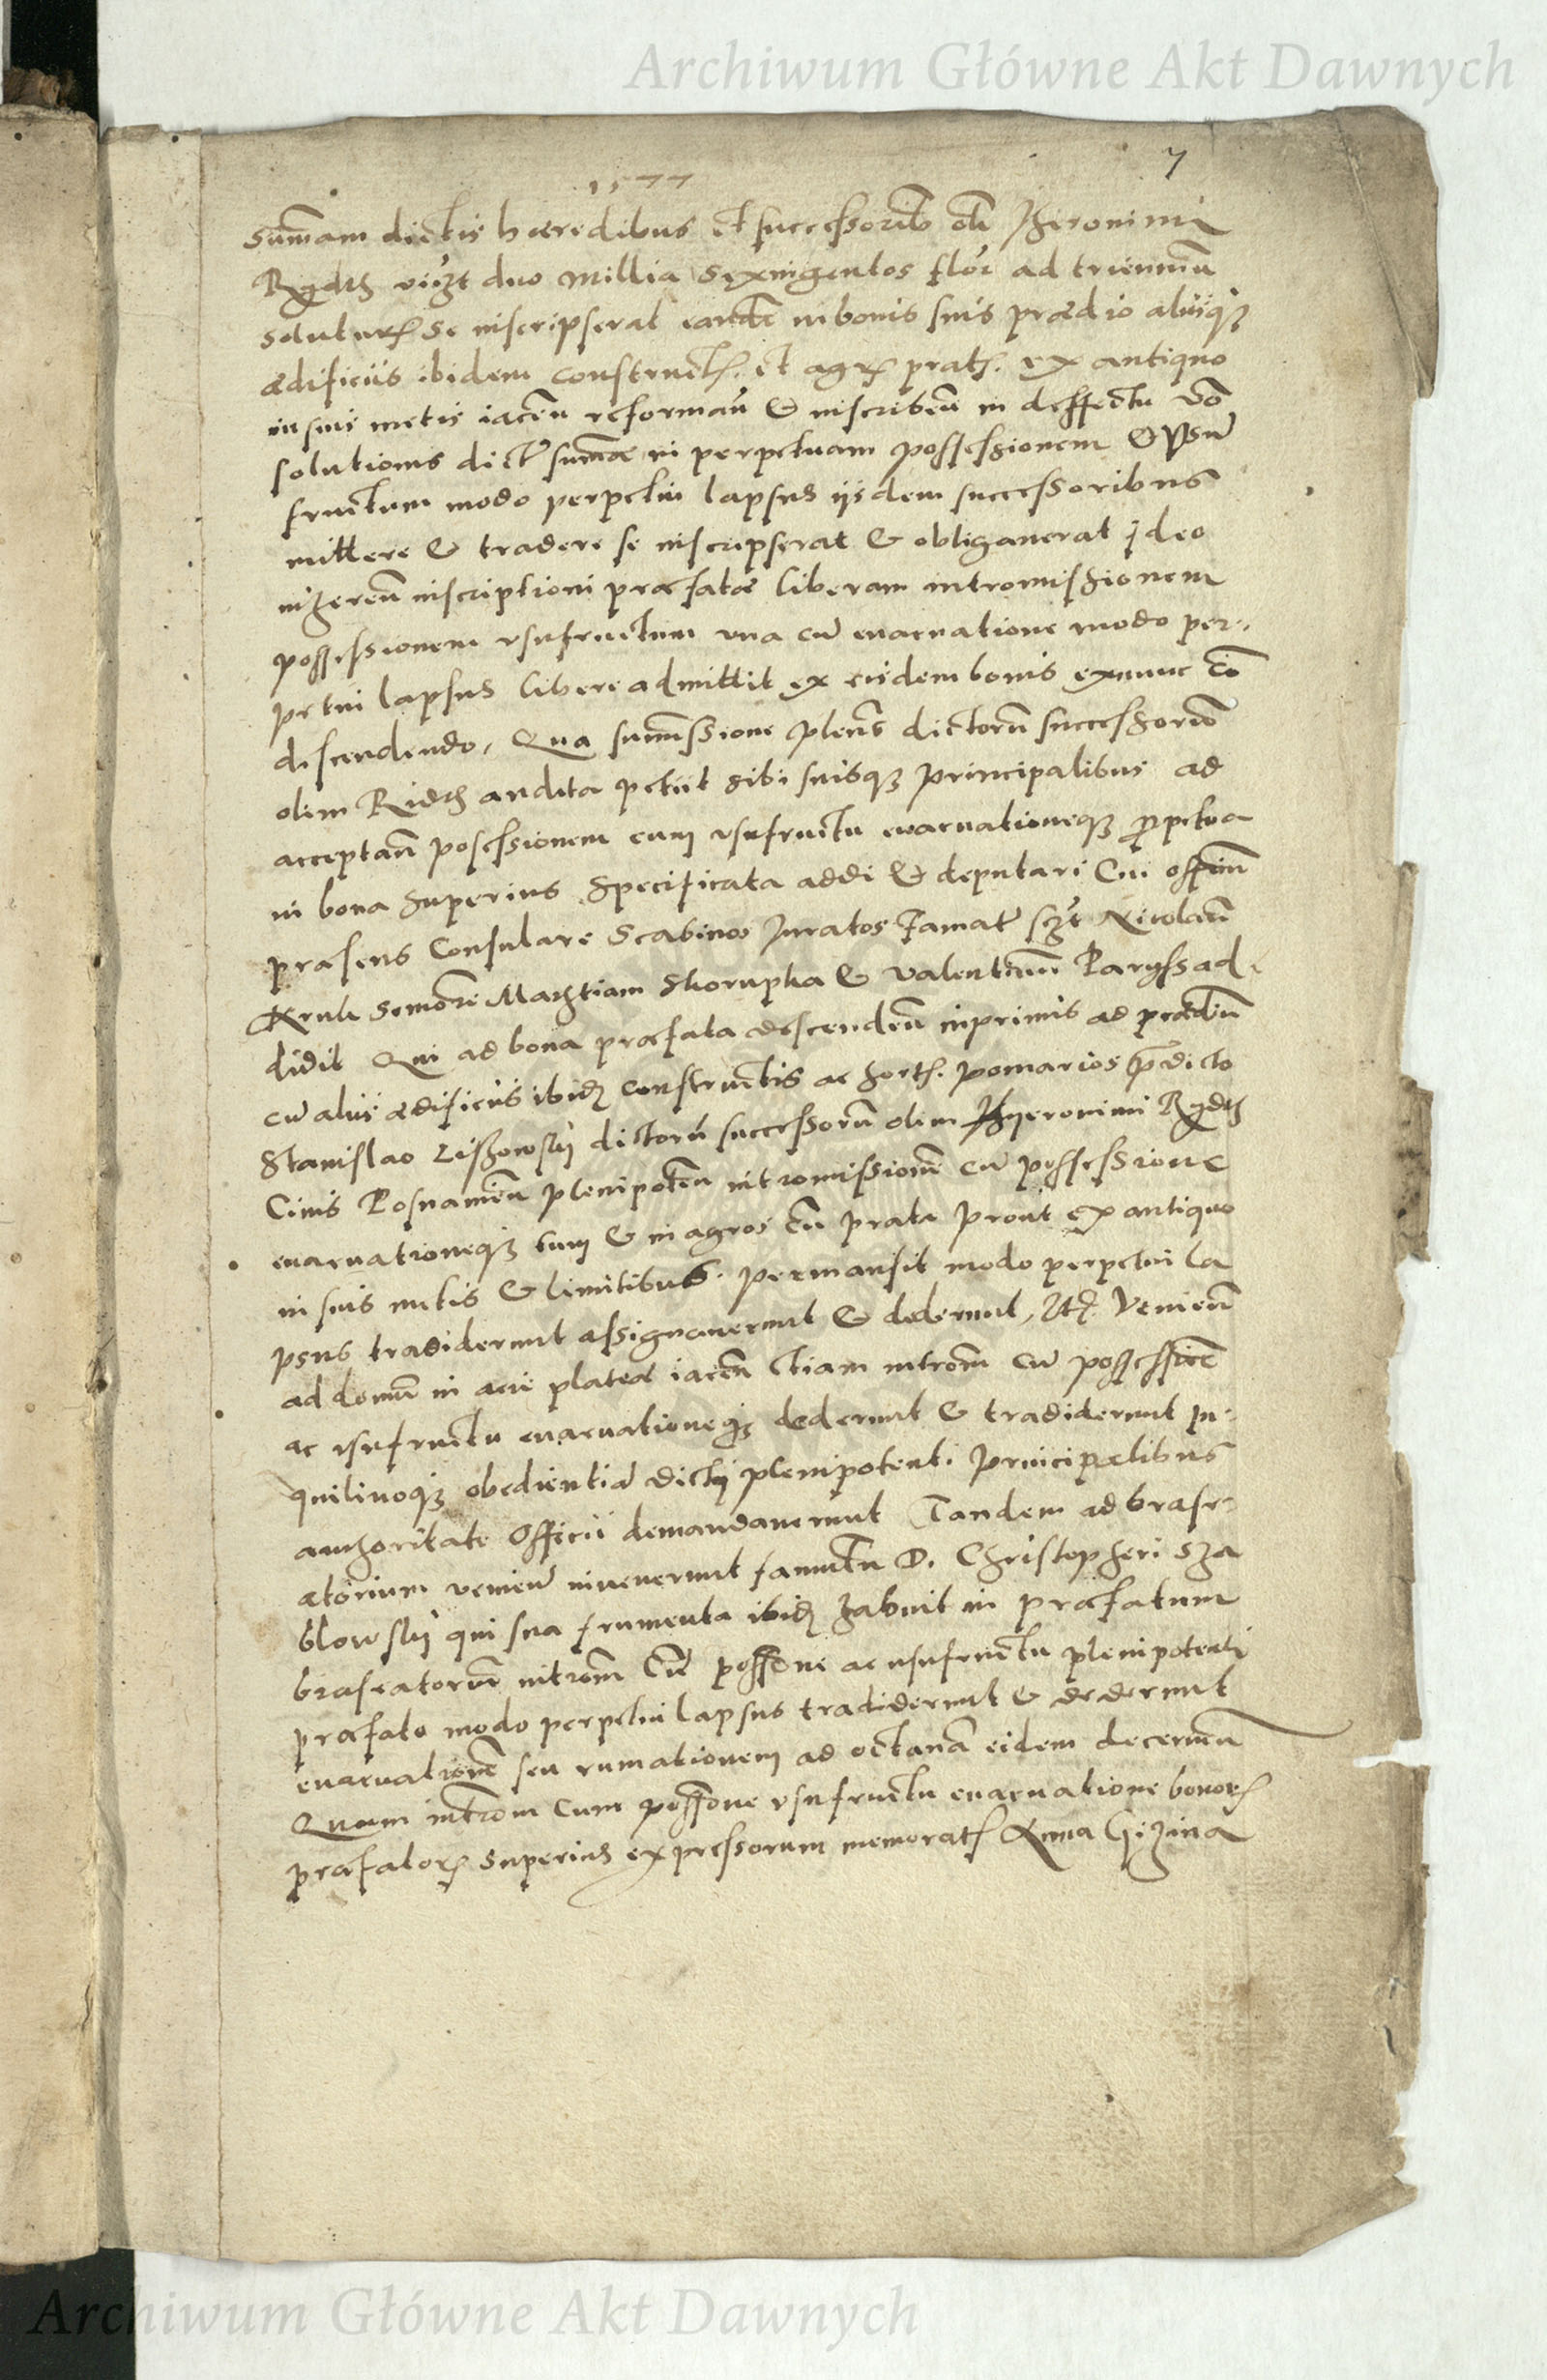 Archiwum Główne Akt Dawnych
7
1577
Summam dictis haeredibus et successorib olī Hieronimi
Rydth vizt duo millia sexingentos flor ad trienniū
soluturꝝ se inscripserat eandē in bonis suis praedio aliisqꝫ
aedificiis ibidem constructꝭ. et agrꝭ pratꝭ. ex antiquo
in suis metis iaceñ reformañ & inscribeñ in deffectu v̄o
solutionis dictae sum̄ae in perpetuam possessionem & vsū
fructum modo perpetui lapsus iisdem successoribus
mittere & tradere se inscripserat & obligauerat ideo
inhaereñ inscriptioni praefatae liberam intromissionem
possessionem vsufructum vna cū euacuatione modo per-
petui lapsus libere admittit ex eisdem bonis exnunc
discendendo. Qua summissione plens dictorū successorum
olim Ridth audita petiit sibi suisqꝫ principalibus ad
acceptañ posessionem cum vsufructu euacuationeqꝫ perpetua
in bona superius specificata addi & deputari Cui officiū
praesens Consulare Scabinos Iuratos Famat sczt Nicolaū
Kruk seniorē Mathiam Skorupka & Valentinū Paryss ad-
didit Qui ad bona praefata descendeñ inprimis ad praediū
cū aliis aedificiis ibidꝫ constructis ac hortꝭ. pomarios praedicto
Stanislao Lisowskij dictorū successorū olim Hyeronimi Rydth
Ciuis Posnanieñ plenipoteñ intromissionē cū possessione
euacuationeqꝫ tum & in agros prata prout ex antiquo
in suis metis & limitibus. permansit modo perpetui la
psus tradiderunt assignauerunt & dederunt, Itꝭ. Venieñ
ad domū in acie plateae iaceñ etiam introm̄ cū possessione
ac vsufructu euacuationeqꝫ dederunt & tradiderunt in-
quilinoqꝫ obedientiā dictj plenipotenti. principalibus
authoritate Officii demandauerunt Tandem ad brase-
atorium venieñ inuenerunt famulū D. Christopheri Sza
blowskij qui sua frumenta ibidꝫ habuit in praefatum
braseatoriū introm̄ Cū posseone ac usufructu plenipotenti
praefato modo perpetui lapsus tradiderunt & dederunt
euacuationē seu rumationem ad octauā eidem decernūn
Quam introm̄ cum posseone vsufructu euacuatione bonorꝝ
praefatorꝝ superius expressorum memoratꝭ Anna Gizina
Archiwum Główne Akt Dawnych